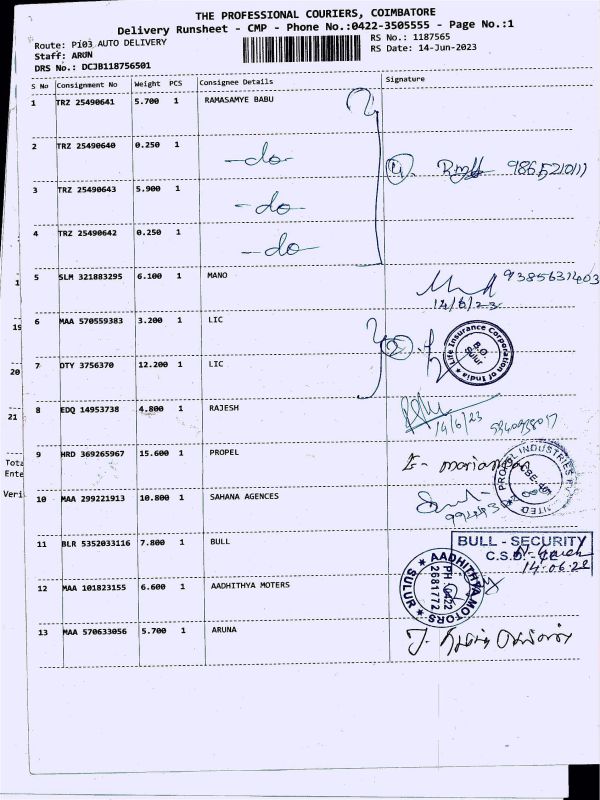 THE PROFESSIONAL COURIERS, COIMBATORE
Delivery Runsheet - CMP - Phone No.:0422-3505555 - Page No.:1
Route: Pi03 AUTO DELIVERY
RS No.: 1187565
Staff: ARUN
RS Date: 14-Jun-2023
DRS No.: DCJB118756501
S No Consignment No Weight PCS Consignee Details Signature
1 TRZ 25490641 5.700 1 RAMASAMYE BABU
2 TRZ 25490640 0.250 1 -do-
4. 9865210111
3 TRZ 25490643 5.900 1 -do-
4 TRZ 25490642 0.250 1 -do-
5 SLM 321883295 6.100 1 MANO
9385631403
14/6/23
6 MAA 570559383 3.200 1 LIC
2
Life Insurance Corporation of India
B.O. Sulur
7 DTY 3756370 12.200 1 LIC
8 EDQ 14953738 4.800 1 RAJESH
14/6/23
9 HRD 369265967 15.600 1 PROPEL
PROPEL INDUSTRIES
10 MAA 299221913 10.800 1 SAHANA AGENCES
11 BLR 5352033116 7.800 1 BULL
BULL - SECURITY
12 MAA 101823155 6.600 1 AADHITHYA MOTERS
AADHITHYA MOTORS
PH: 0422 2681772
SULUR
13 MAA 570633056 5.700 1 ARUNA
1
19
20
21
Tota
Ente
Veri